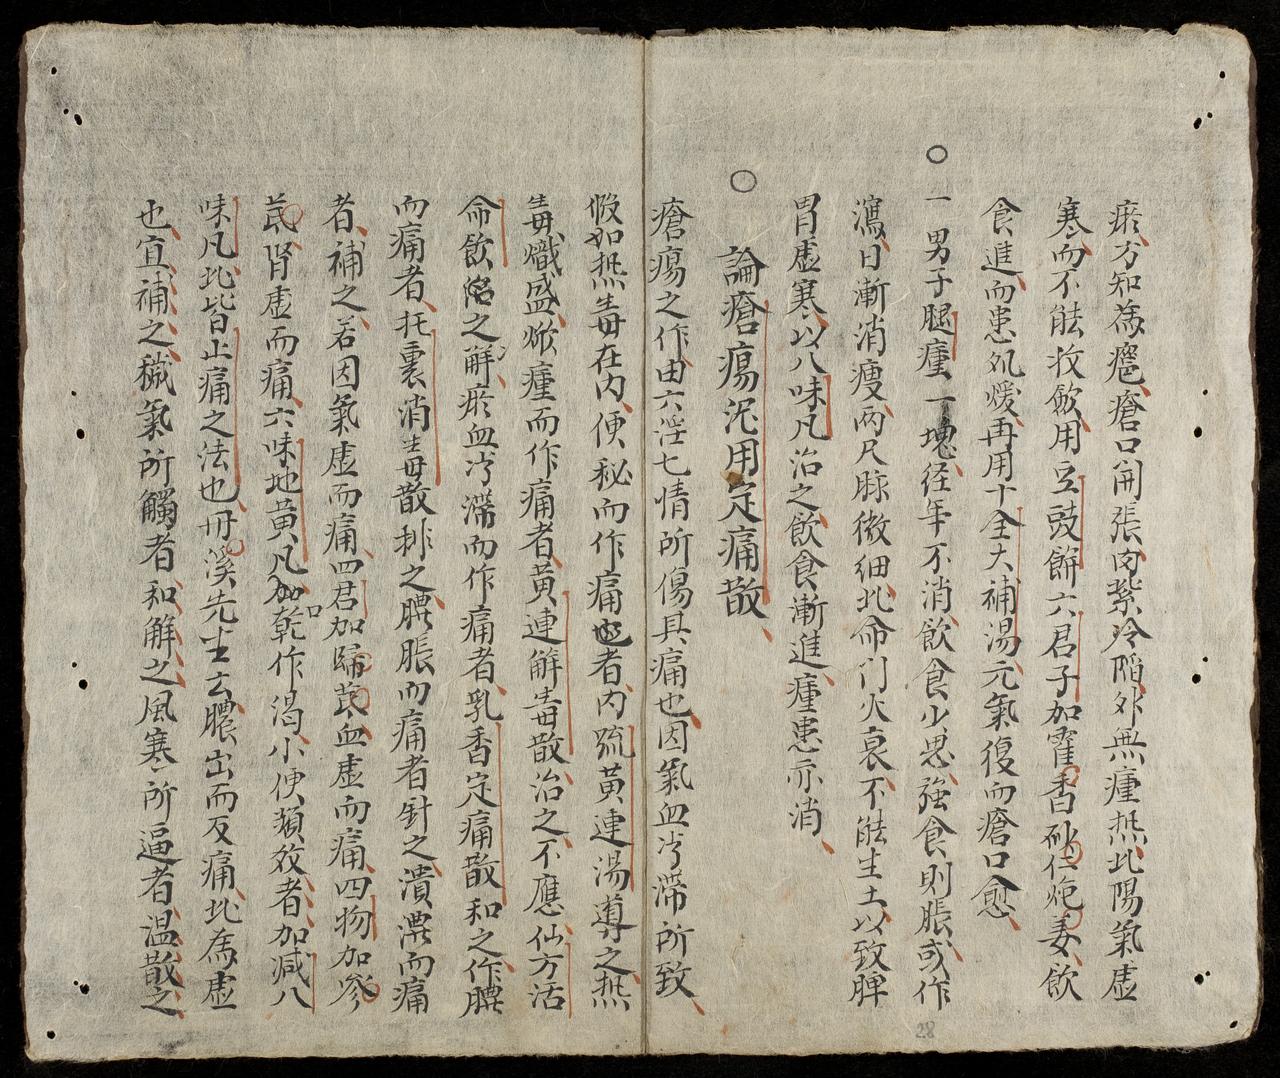 瘀方知為瘡瘡口開張肉紫冷陷外無瘇热此陽氣虛
寒而不能收歛用豆豉餅六君子加藿香砂仁炮姜飲
食進而患処煖再用十全大補湯元氣復而瘡口愈
○一男子腿瘇一塊径年不消飲食少思強食則脹或作
瀉日漸消瘦两尺脉微細此命门火衰不能生土以致脾
胃虛寒以八味凡治之飲食漸進瘇患亦消
○論瘡瘍泥用定痛散
瘡瘍之作由六淫七情所傷其痛也因氣血凝滯所致
假如热毒在内便秘而作痛者内疏黄連湯導之热
毒熾盛焮瘇而作痛者黄連解毒散治之不應仙方活
命飲陷之解瘀血凝滯而作痛者乳香定痛散和之作膿
而痛者托裏消毒散排之膿脹而痛者針之潰濃而痛
者補之若因氣虛而痛四君加歸芪血虛而痛四物加參
芪腎虛而痛六味地黄凡加乾作渴小便頻数者加减八
味凡此皆止痛之法也丹溪先生云膿出而反痛此為虛
也宜補之穢氣所觸者和解之風寒所逼者温散之
28